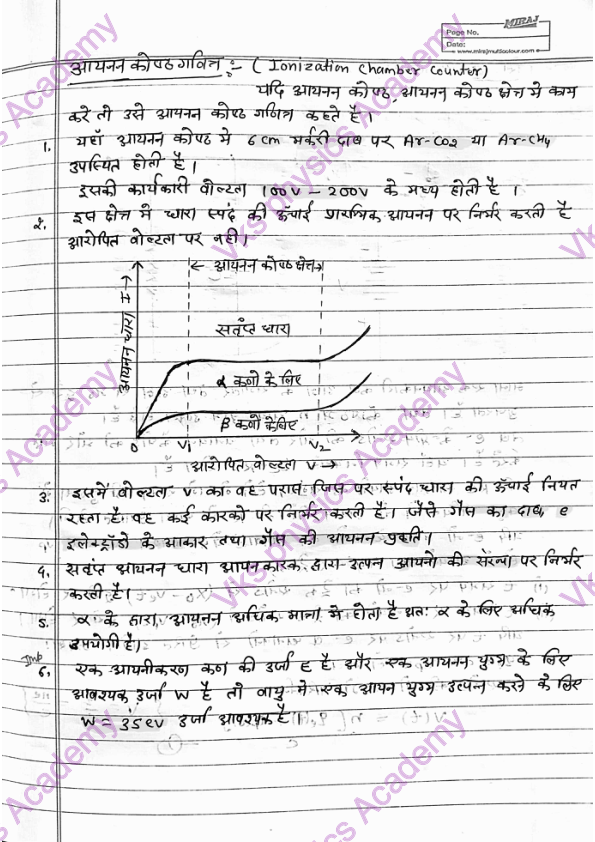 MIRAJ
Page No.
Date:
www.mirajmulticolour.com
आयनन कोष्ठ गणित्र :- ( Ionization Chamber Counter)
यदि आयनन कोष्ठ, आयनन कोष्ठ क्षेत्र मे काम
करे तो उसे आयनन कोष्ठ गणित्र कहते है।
1. यहाँ आयनन कोष्ठ मे 6 cm मर्करी दाब पर Ar-CO2 या Ar-CH4
उपस्थित होती है।
इसकी कार्यकारी वोल्टता 100V - 200V के मध्य होती है ।
2. इस क्षेत्र मे धारा स्पंद की ऊँचाई प्रारम्भिक आयनन पर निर्भर करती है
आरोपित वोल्टता पर नही।
← आयनन कोष्ठ क्षेत्र→
संतृप्त धारा
आयनन धारा I →
α कणो के लिए
β कणो के लिए
0 V1 V2
आरोपित वोल्टता V →
3. इसमें वोल्टता V का वह परास जिस पर स्पंद धारा की ऊँचाई नियत
रहता है वह कई कारको पर निर्भर करती है। जैसे गैस का दाब, e
इलेक्ट्रॉडो के आकार तथा गैस की आयनन प्रवृति।
4. संतृप्त आयनन धारा आयनकारक द्वारा उत्पन्न आयनो की संख्या पर निर्भर
करती है।
5. α के द्वारा, आयनन अधिक मात्रा मे होता है अतः α के लिए अधिक
उपयोगी है।
Imp
6. एक आयनीकरण कण की उर्जा E है और एक आयनन युग्म के लिए
आवश्यक उर्जा W है तो वायु मे एक आयन युग्म उत्पन्न करने के लिए
W = 35 eV उर्जा आवश्यक है।
Vks physics Academy